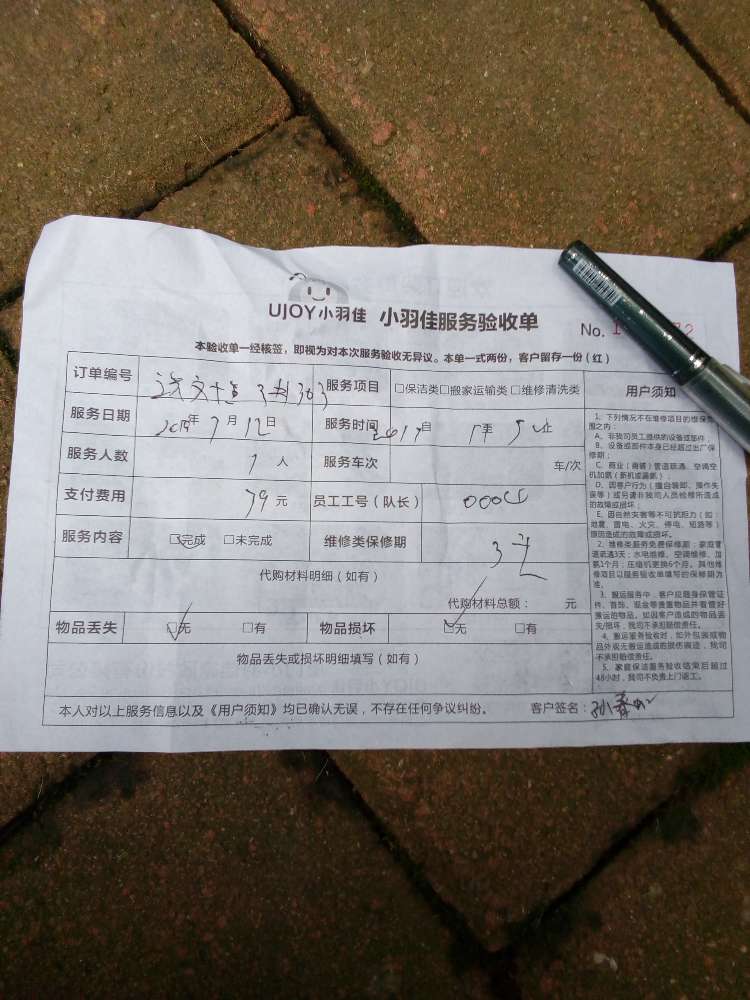 UJOY小羽佳 小羽佳服务验收单
No.
本验收单一经核签，即视为对本次服务验收无异议。本单一式两份，客户留存一份（红）
订单编号 服务项目 □保洁类□搬家运输类□维修清洗类 用户须知
服务日期 年7月12日 服务时间
服务人数 1人 服务车次 车/次
支付费用 79元 员工工号（队长）
服务内容 □完成 □未完成 维修类保修期 3
代购材料明细（如有）
代购材料总额： 元
物品丢失 □无 □有 物品损坏 □无 □有
物品丢失或损坏明细填写（如有）
本人对以上服务信息以及《用户须知》均已确认无误，不存在任何争议纠纷。 客户签名：孙
1、下列情况不在维修项目的维保范
围之内：
A、非我司员工提供的设备或部件
B、设备或部件本身已经超过出厂保
修期；
C、商业（商铺）管道疏通、空调空
机加氟（新机或漏氟）；
D、因客户行为（擅自装卸、操作失
误等）或另请非我司人员检修所造成
的故障或损坏；
E、因自然灾害等不可抗拒力（如：
地震、雷电、火灾、停电、短路等）
原因造成的故障或损坏。
2、维修类服务免费保修期：家庭管
道疏通3天；水电维修、空调维修、加
氟1个月；压缩机更换6个月。其他维
修项目以服务验收单填写的保修期为
准。
3、搬运服务中，客户应随身保管证
件、首饰、现金等贵重物品并看管好
搬运的物品。如因客户造成的物品丢
失/损坏，我司不承担赔偿责任。
4、搬运服务验收时，如外包装或物
品外观无搬运造成的损伤痕迹，我司
不承担赔偿责任。
5、家庭保洁服务验收结束后超过
48小时，我司不负责上门返工。